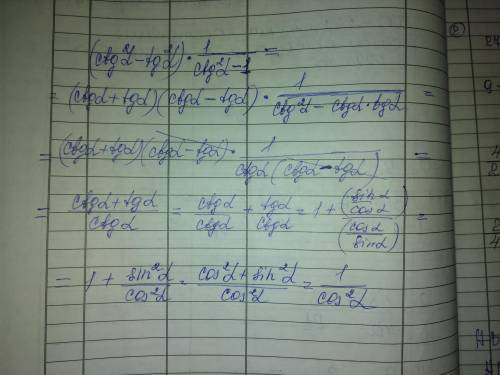 (ctg²α - tg²α) · 1/(ctg²α - 1) =
= (ctgα + tgα)(ctgα - tgα) · 1/(ctg²α - ctgα · tgα) =
= (ctgα + tgα)(ctgα - tgα) · 1/(ctgα(ctgα - tgα)) =
= (ctgα + tgα)/ctgα = ctgα/ctgα + tgα/ctgα = 1 + (sinα/cosα)/(cosα/sinα) =
= 1 + sin²α/cos²α = (cos²α + sin²α)/cos²α = 1/cos²α